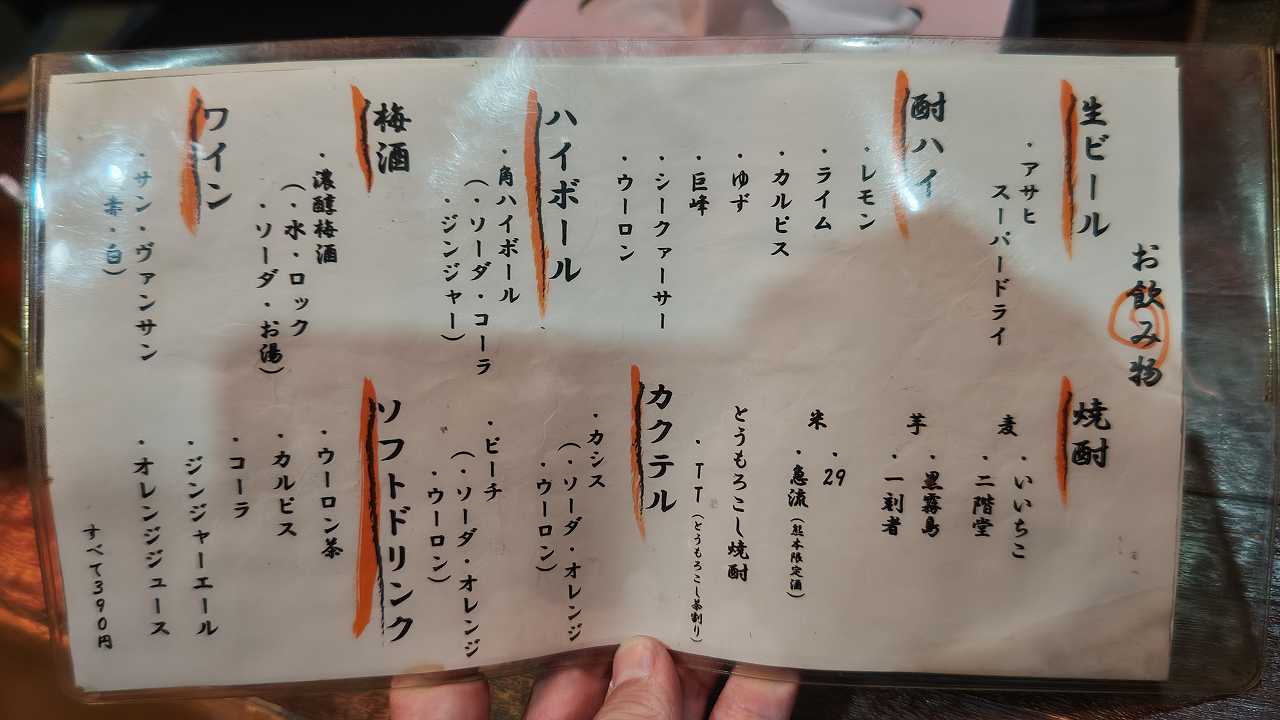 お飲み物
生ビール
・アサヒ
スーパードライ
酎ハイ
・レモン
・ライム
・カルピス
・ゆず
・巨峰
・シークァーサー
・ウーロン
ハイボール
・角ハイボール
（・ソーダ・コーラ
・ジンジャー）
梅酒
・濃醇梅酒
（・水・ロック
・ソーダ・お湯）
ワイン
・サン・ヴァンサン
（赤・白）
焼酎
麦 ・いいちこ
・二階堂
芋 ・黒霧島
・一刻者
米 ・29
・急流（熊本限定酒）
とうもろこし焼酎
・TT（とうもろこし茶割り）
カクテル
・カシス
（・ソーダ・オレンジ
・ウーロン）
・ピーチ
（・ソーダ・オレンジ
・ウーロン）
ソフトドリンク
・ウーロン茶
・カルピス
・コーラ
・ジンジャーエール
・オレンジジュース
すべて390円